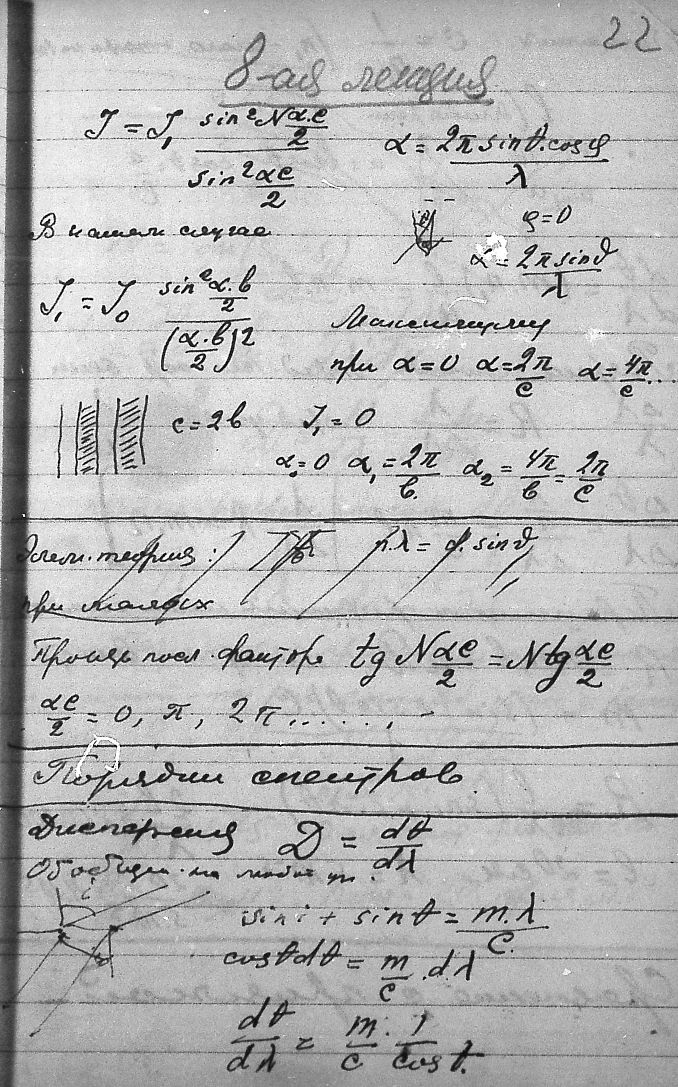 22
8-ая лекция
J = J₁ sin² Nα·c/2 / sin² αc/2
α = 2π sinθ·cosφ / λ
В нашем случае
φ=0
α = 2π sinθ / λ
J₁ = J₀ sin² α·b/2 / (α·b/2)²
Максимумы
при α=0 α=2π/c α=4π/c...
c=2b J₁=0
α₀=0 α₁=2π/b α₂=4π/b=2π/c
Элем. теория: n·λ = d·sinθ
при малых
Произв. посл. фактора tg Nαc/2 = N tg αc/2
αc/2 = 0, π, 2π......
Порядки спектров
Дисперсия D = dθ/dλ
Обобщен. на любой
i
sin i + sin θ = m·λ/c
cosθdθ = m/c·dλ
dθ/dλ = m/c·1/cosθ.